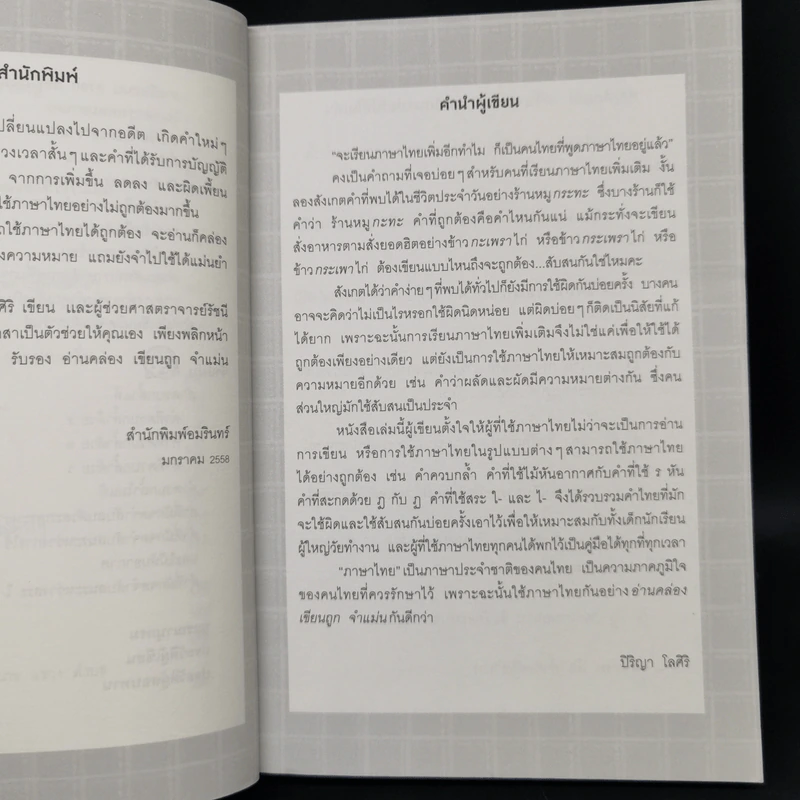 สำนักพิมพ์
ปลี่ยนแปลงไปจากอดีต เกิดคำใหม่ๆ
วงเวลาสั้นๆ และคำที่ได้รับการบัญญัติ
จากการเพิ่มขึ้น ลดลง และผิดเพี้ยน
ใช้ภาษาไทยอย่างไม่ถูกต้องมากขึ้น
ถใช้ภาษาไทยได้ถูกต้อง จะอ่านก็คล่อง
งความหมาย แถมยังจำไปใช้ได้แม่นยำ
ศิริ เขียน และผู้ช่วยศาสตราจารย์รัชนี
าสาเป็นตัวช่วยให้คุณเอง เพียงพลิกหน้า
รับรอง อ่านคล่อง เขียนถูก จำแม่น
สำนักพิมพ์อมรินทร์
มกราคม 2558
คำนำผู้เขียน
"จะเรียนภาษาไทยเพิ่มอีกทำไม ก็เป็นคนไทยที่พูดภาษาไทยอยู่แล้ว"
คงเป็นคำถามที่เจอบ่อยๆ สำหรับคนที่เรียนภาษาไทยเพิ่มเติม งั้น
ลองสังเกตคำที่พบได้ในชีวิตประจำวันอย่างร้านหมูกระทะ ซึ่งบางร้านก็ใช้
คำว่า ร้านหมูกะทะ คำที่ถูกต้องคือคำไหนกันแน่ แม้กระทั่งจะเขียน
สั่งอาหารตามสั่งยอดฮิตอย่างข้าวกะเพราไก่ หรือข้าวกระเพราไก่ หรือ
ข้าวกระเพาไก่ ต้องเขียนแบบไหนถึงจะถูกต้อง...สับสนกันใช่ไหมคะ
สังเกตได้ว่าคำง่ายๆ ที่พบได้ทั่วไปก็ยังมีการใช้ผิดกันบ่อยครั้ง บางคน
อาจจะคิดว่าไม่เป็นไรหรอกใช้ผิดนิดหน่อย แต่ผิดบ่อยๆ ก็ติดเป็นนิสัยที่แก้
ได้ยาก เพราะฉะนั้นการเรียนภาษาไทยเพิ่มเติมจึงไม่ใช่แค่เพื่อให้ใช้ได้
ถูกต้องเพียงอย่างเดียว แต่ยังเป็นการใช้ภาษาไทยให้เหมาะสมถูกต้องกับ
ความหมายอีกด้วย เช่น คำว่าผลัดและผัดมีความหมายต่างกัน ซึ่งคน
ส่วนใหญ่มักใช้สับสนเป็นประจำ
หนังสือเล่มนี้ผู้เขียนตั้งใจให้ผู้ที่ใช้ภาษาไทยไม่ว่าจะเป็นการอ่าน
การเขียน หรือการใช้ภาษาไทยในรูปแบบต่างๆ สามารถใช้ภาษาไทย
ได้อย่างถูกต้อง เช่น คำควบกล้ำ คำที่ใช้ไม้หันอากาศกับคำที่ใช้ ร หัน
คำที่สะกดด้วย ฎ กับ ฏ คำที่ใช้สระ ใ- และ ไ- จึงได้รวบรวมคำไทยที่มัก
จะใช้ผิดและใช้สับสนกันบ่อยครั้งเอาไว้เพื่อให้เหมาะสมกับทั้งเด็กนักเรียน
ผู้ใหญ่วัยทำงาน และผู้ที่ใช้ภาษาไทยทุกคนได้พกไว้เป็นคู่มือได้ทุกที่ทุกเวลา
"ภาษาไทย" เป็นภาษาประจำชาติของคนไทย เป็นความภาคภูมิใจ
ของคนไทยที่ควรรักษาไว้ เพราะฉะนั้นใช้ภาษาไทยกันอย่าง อ่านคล่อง
เขียนถูก จำแม่นกันดีกว่า
ปิริญา โลศิริ